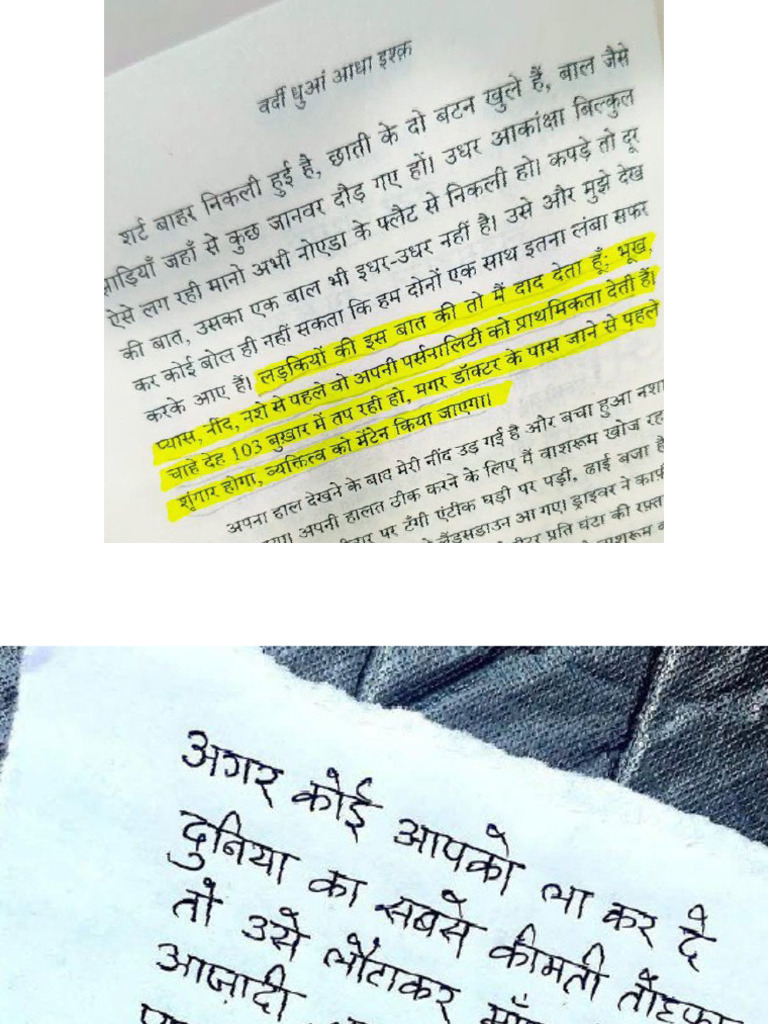 वर्दी धुआं आधा इश्क़
शर्ट बाहर निकली हुई है, छाती के दो बटन खुले हैं, बाल जैसे
झाड़ियाँ जहाँ से कुछ जानवर दौड़ गए हों। उधर आकांक्षा बिल्कुल
ऐसे लग रही मानो अभी नोएडा के फ्लैट से निकली हो। कपड़े तो दूर
की बात, उसका एक बाल भी इधर-उधर नहीं है। उसे और मुझे देख
कर कोई बोल ही नहीं सकता कि हम दोनों एक साथ इतना लंबा सफर
करके आए हैं। लड़कियों की इस बात की तो मैं दाद देता हूँ; भूख,
प्यास, नींद, नशे से पहले वो अपनी पर्सनालिटी को प्राथमिकता देती हैं।
चाहे देह 103 बुखार में तप रही हो, मगर डॉक्टर के पास जाने से पहले
शृंगार होगा, व्यक्तित्व को मेंटेन किया जाएगा।
अपना हाल देखने के बाद मेरी नींद उड़ गई है और बचा हुआ नशा
अपनी हालत ठीक करने के लिए मैं वाशरूम खोज रह
पर टँगी एंटीक घड़ी पर पड़ी, ढाई बजा है
लैंसडाउन आ गए। ड्राइवर ने काफ़ी
प्रति घंटा की रफ़्त
वाशरूम
अगर कोई आपको ला कर दे
दुनिया का सबसे कीमती तोहफ़ा
तो उसे लौटाकर माँ
आज़ादी